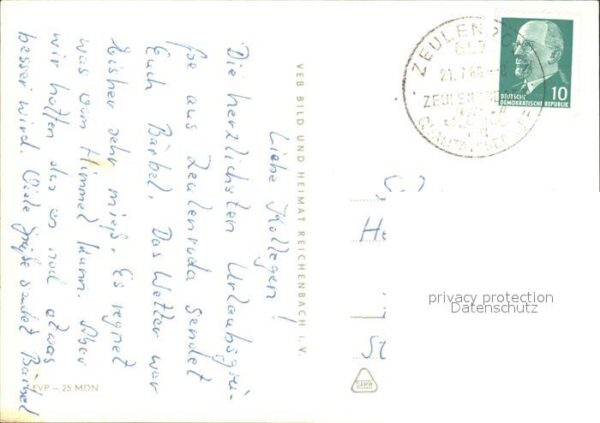 Liebe Kollegen!
Die herzlichsten Urlaubsgrü-
ße aus Zeulenroda sendet
Euch Bärbel. Das Wetter war
bisher sehr mieß. Es regnet
was vom Himmel kann. Aber
wir hoffen das es noch etwas
besser wird. Viele Grüße sendet Bärbel
VEB BILD UND HEIMAT REICHENBACH I. V.
EVP – 25 MDN
ZEULENRO
657
21.7.66
DEUTSCHE
DEMOKRATISCHE REPUBLIK
10
He
St
privacy protection
Datenschutz